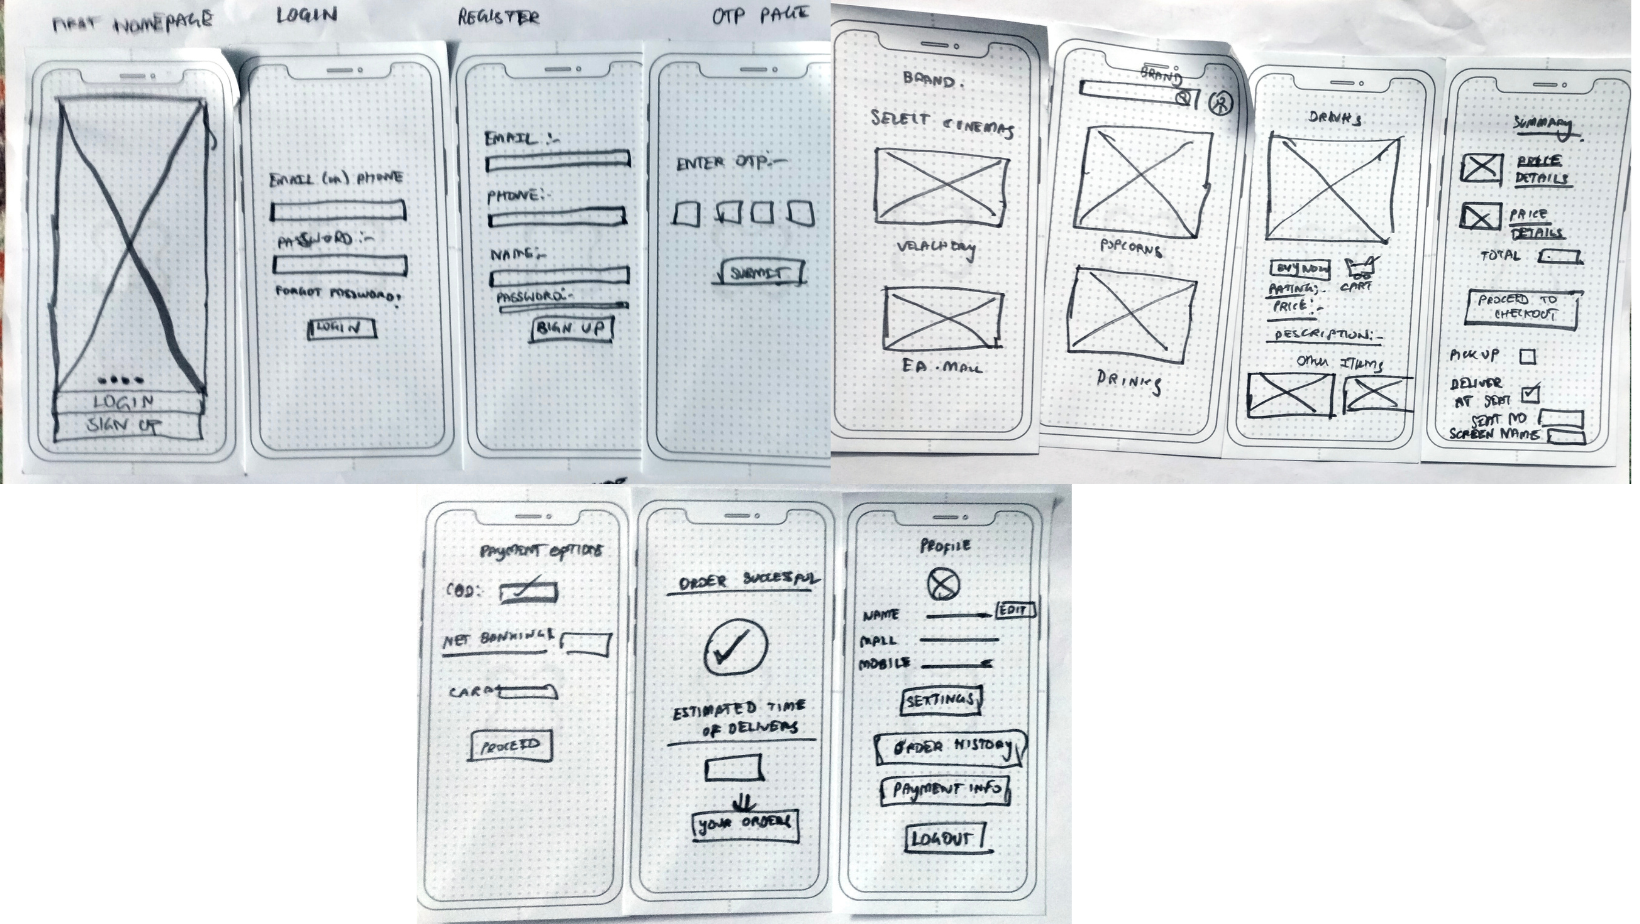 FIRST HOMEPAGE
LOGIN
REGISTER
OTP PAGE
LOGIN
SIGN UP
EMAIL (OR) PHONE
PASSWORD :-
FORGOT PASSWORD?
LOGIN
EMAIL :-
PHONE:-
NAME:-
PASSWORD:-
SIGN UP
ENTER OTP:-
SUBMIT
BRAND.
SELECT CINEMAS
VELACHERY
EA.MALL
BRAND
POPCORNS
DRINKS
DRINKS
BUY NOW
CART
RATING:-
PRICE:-
DESCRIPTION:-
OTHER ITEMS
SUMMARY
PRICE
DETAILS
PRICE
DETAILS
TOTAL
PROCEED TO
CHECKOUT
PICK UP
DELIVER
AT SEAT
SEAT NO
SCREEN NAME
PAYMENT OPTIONS
COD:
NET BANKING
CARD
PROCEED
ORDER SUCCESSFUL
ESTIMATED TIME
OF DELIVERY
YOUR ORDERS
PROFILE
NAME
EDIT
MAIL
MOBILE
SETTINGS
ORDER HISTORY
PAYMENT INFO
LOGOUT